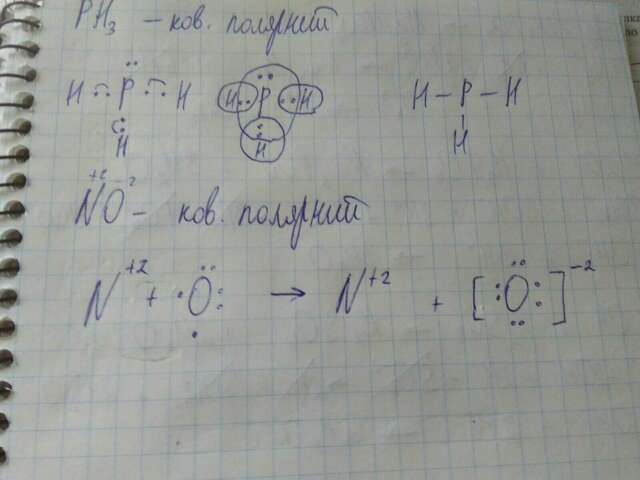 PH₃ – ков. полярний
H : P : H H : P : H H – P – H
H H H
N⁺²O⁻² – ков. полярний
N⁺² + O → N⁺² + [O]⁻²